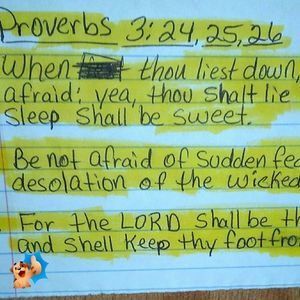 Proverbs 3:24, 25, 26
When thou liest down,
afraid: yea, thou shalt lie
Sleep Shall be Sweet.
Be not afraid of Sudden fea
desolation of the wicked
For the LORD Shall be th
and Shell Keep thy foot fro